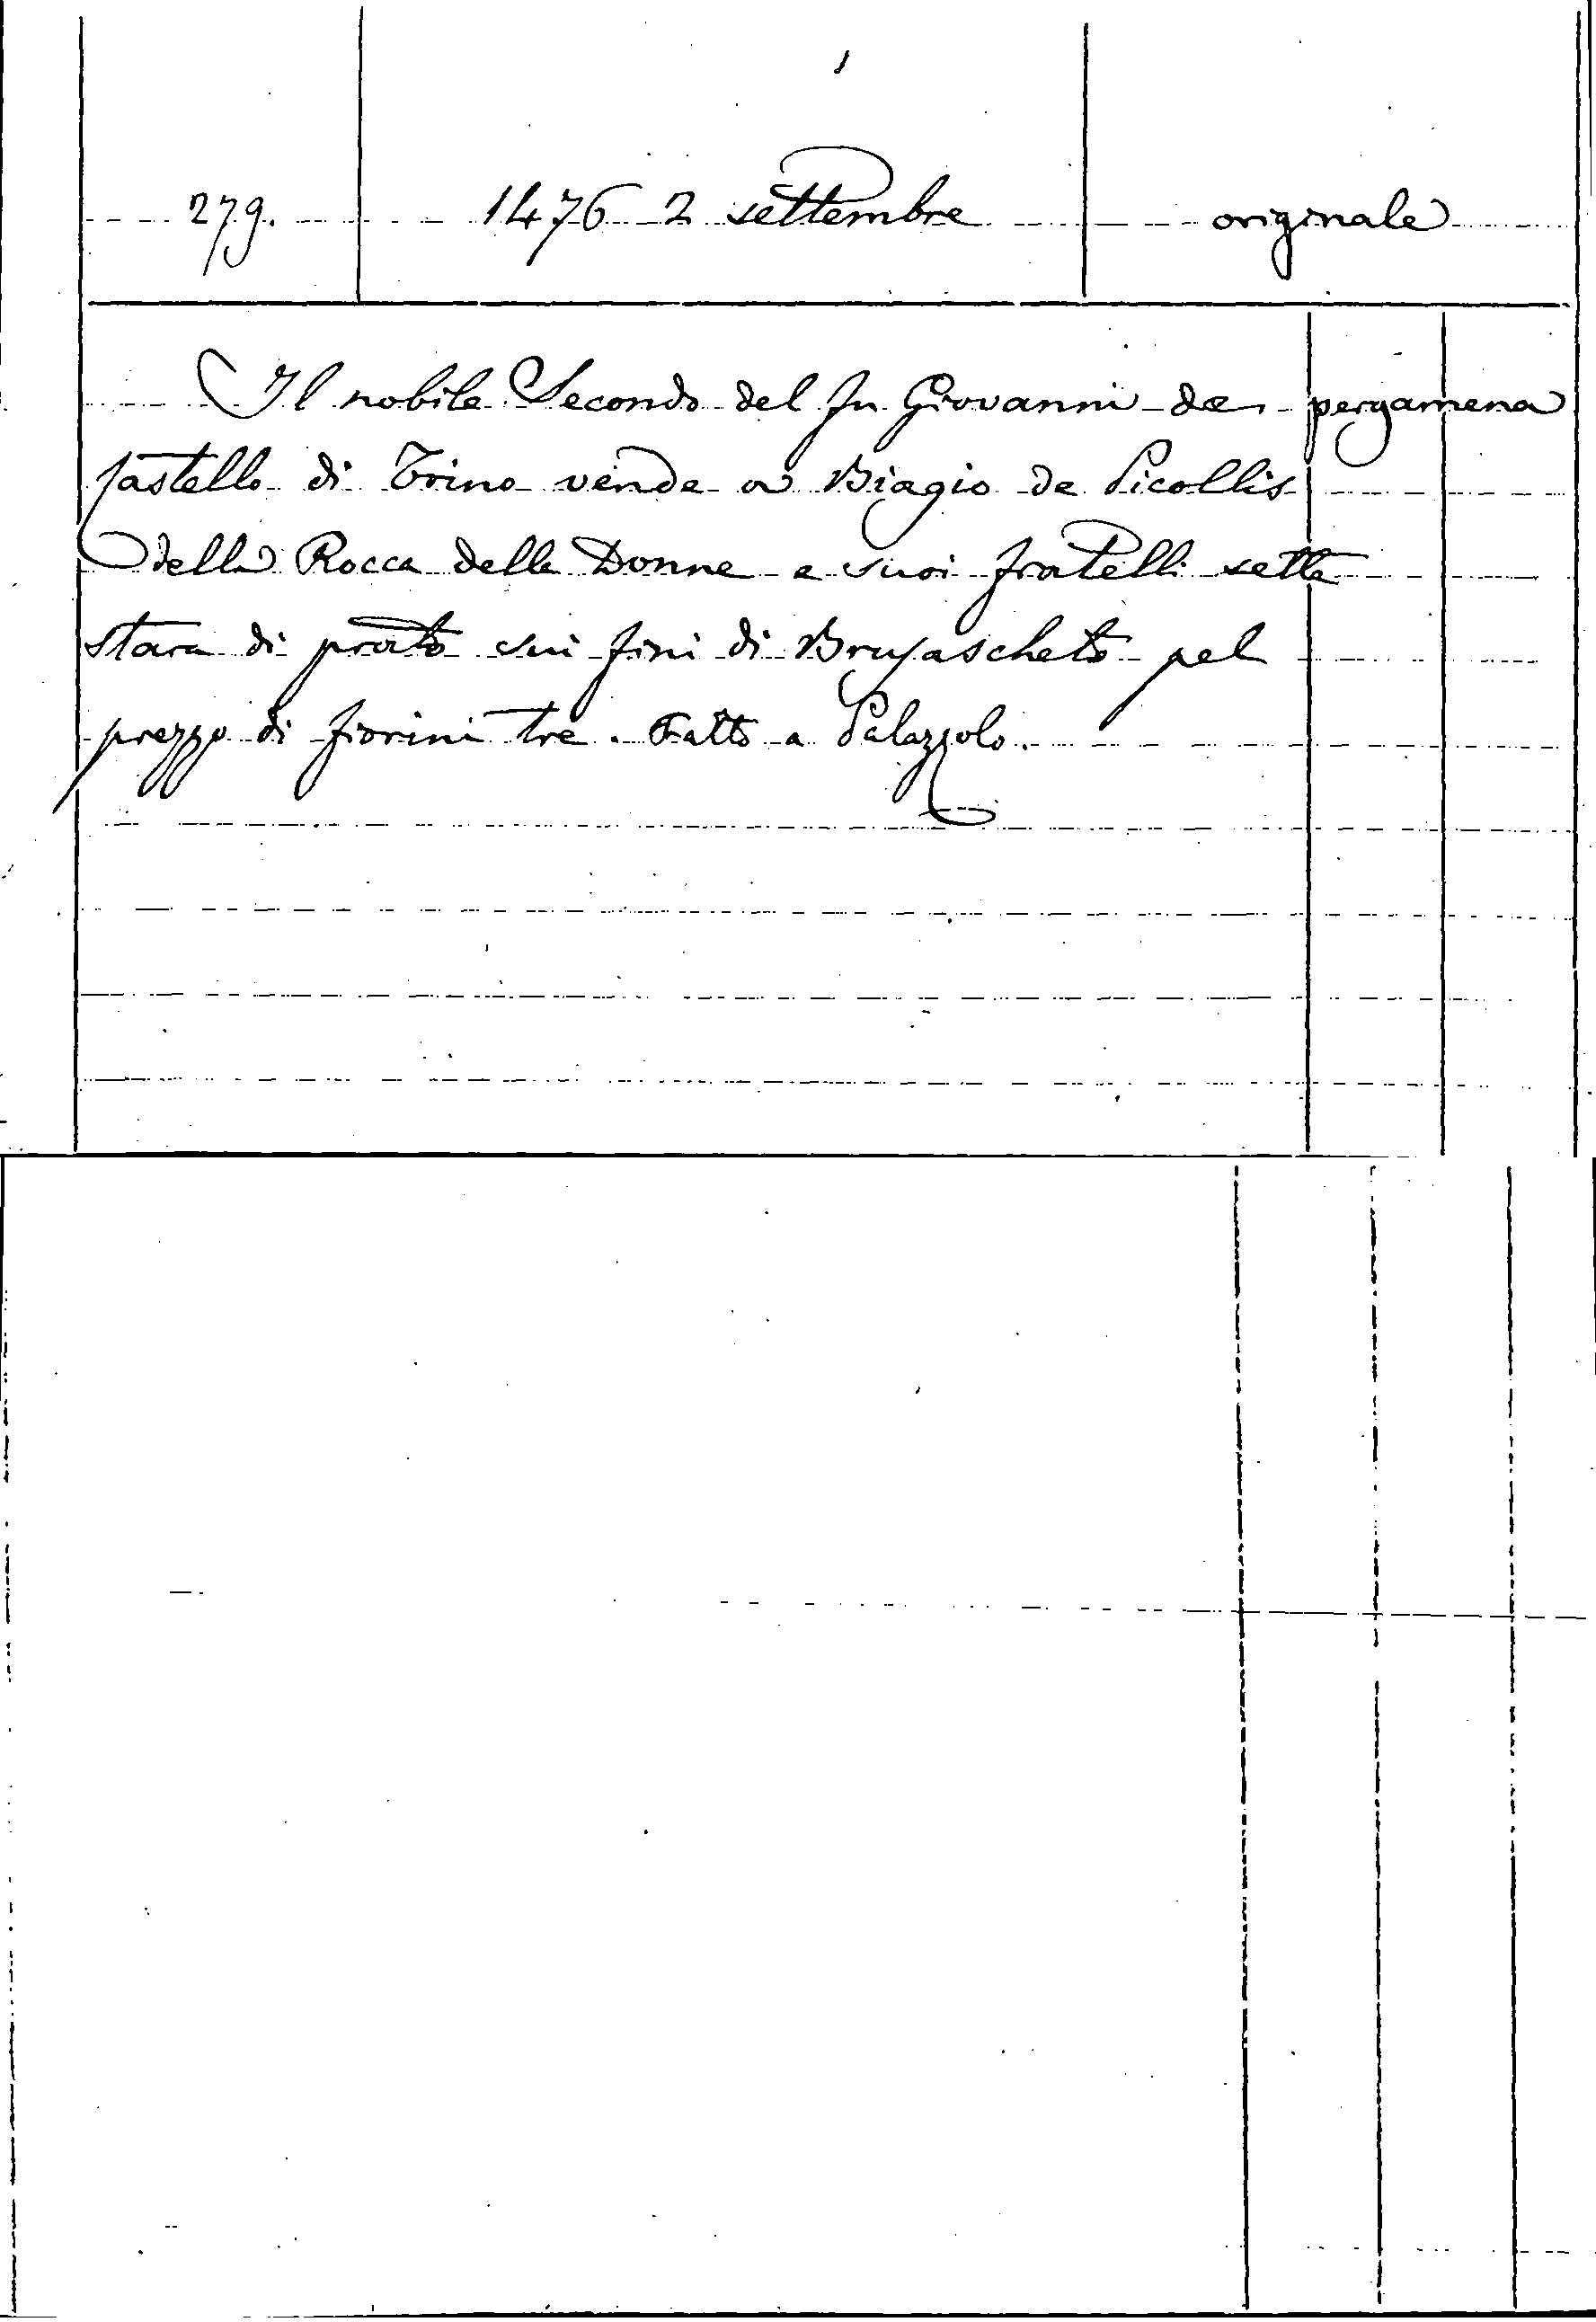 279. 1476 2 settembre originale
Il nobile Secondo del fu Giovanni de pergamena
Castello di Trino vende a Biagio de Picollis
della Rocca delle Donne e suoi fratelli sette
stara di prato sui fini di Brusascheto pel
prezzo di fiorini tre. Fatto a Palazzolo.